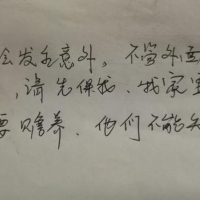 会发生意外，不管外面
，请先保我．我家里
要赡养．他们不能失